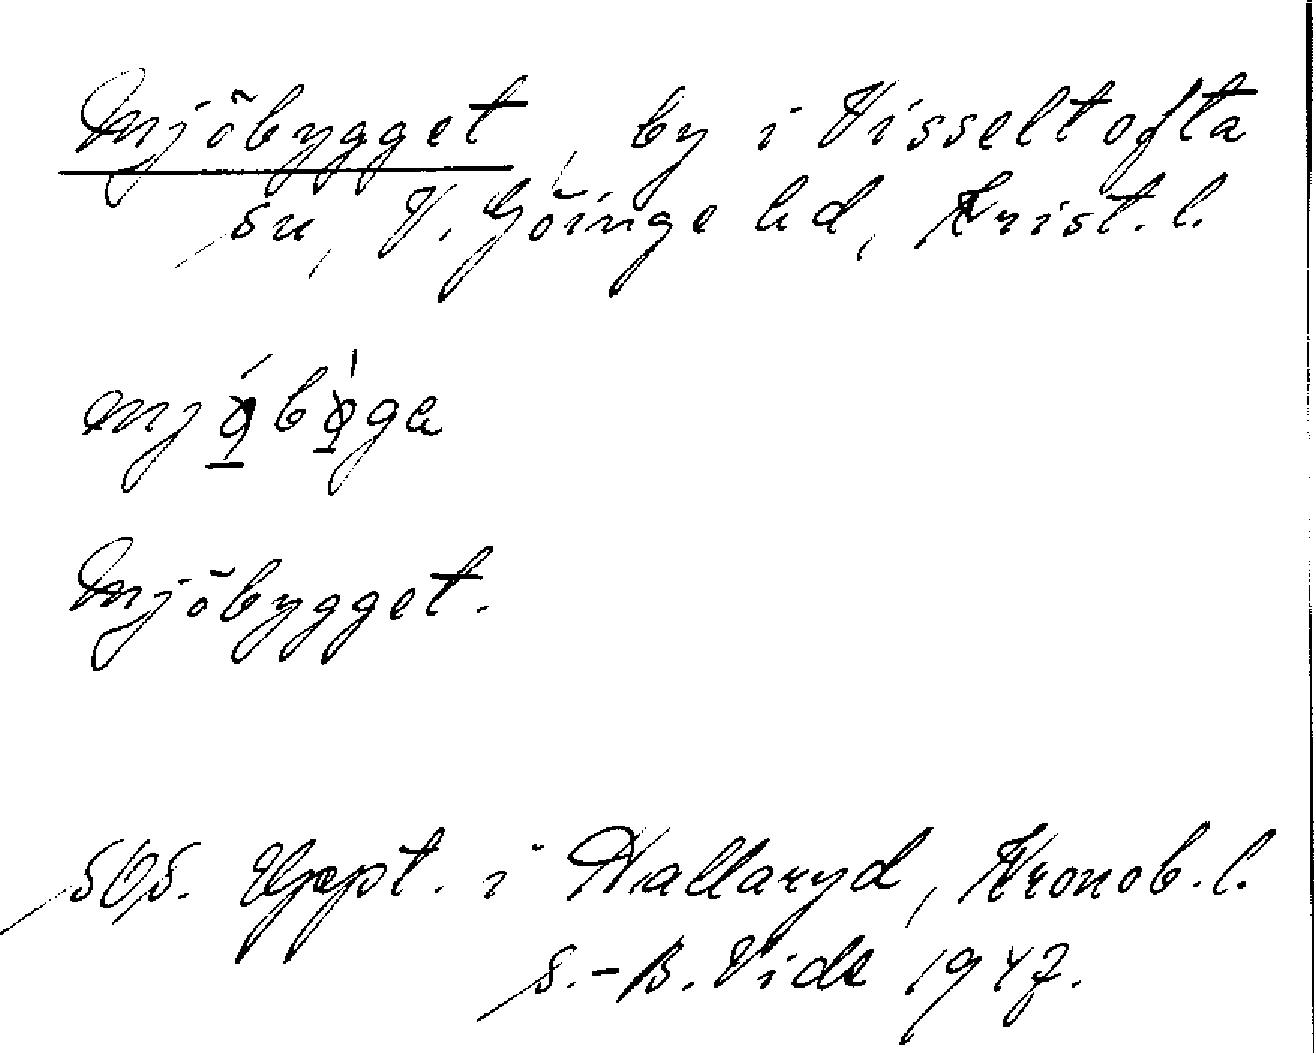 Mjöbygget, by i Visseltofta
sn, V. Göinge hd, Krist. l.
Mjöbygget.
SOS. Uppt. i Hallaryd, Kronob. l.
S.-B. Vide 1947.